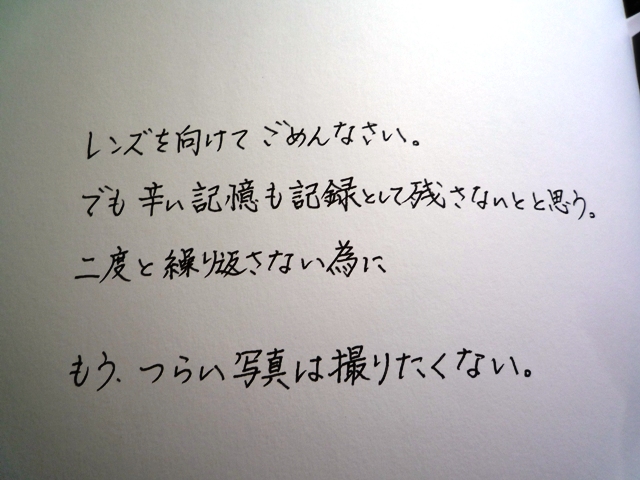 レンズを向けてごめんなさい。
でも辛い記憶も記録として残さないとと思う。
二度と繰り返さない為に
もう、つらい写真は撮りたくない。